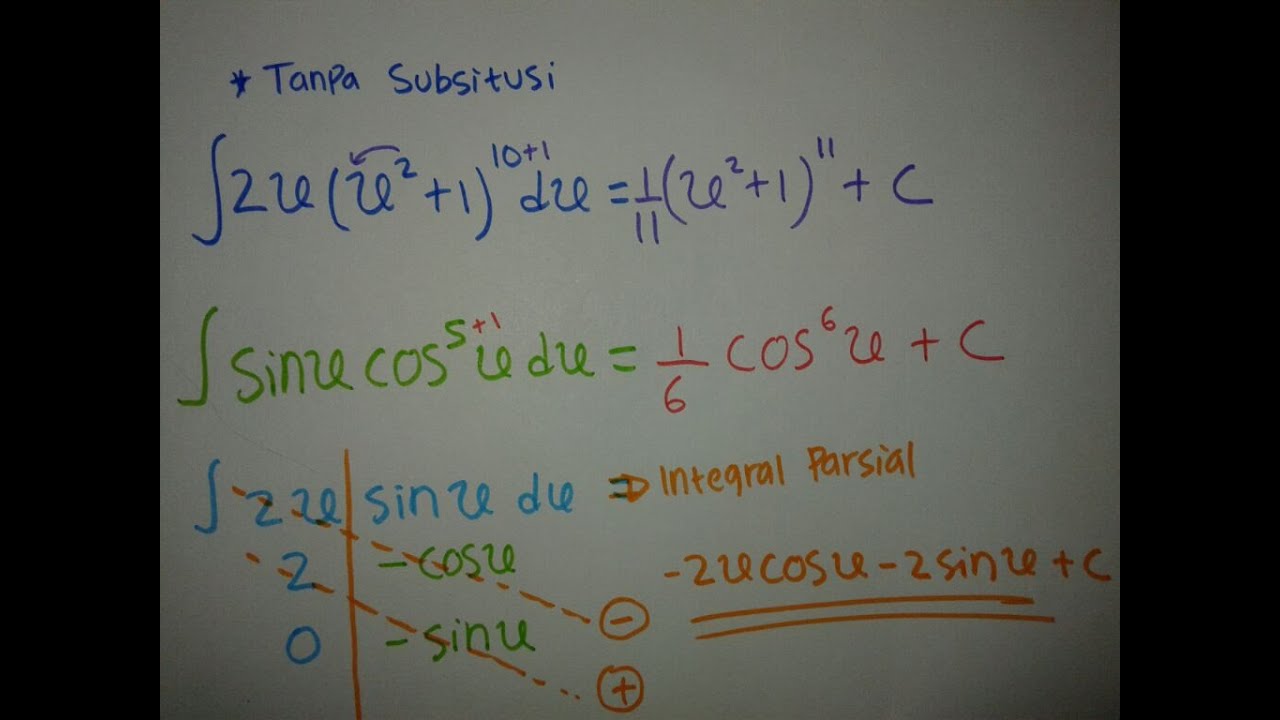 * Tanpa Subsitusi
∫2x(x²+1)¹⁰⁺¹dx = 1/11(x²+1)¹¹ + C
∫sinx cos⁵⁺¹x dx = 1/6 cos⁶x + C
∫2x | sinx dx ⇒ Integral Parsial
2 | -cosx
-2xcosx - 2sinx + C
0 | -sinx
(-)
(+)